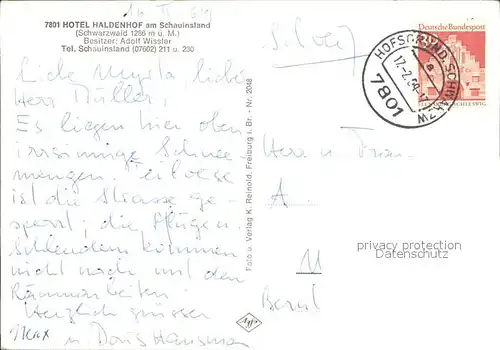 16. II. 69
7801 HOTEL HALDENHOF am Schauinsland
(Schwarzwald 1286 m ü. M.)
Besitzer: Adolf Wissler
Tel. Schauinsland (07602) 211 u. 230
Liebe Myrta liebe
Herr Müller,
Es liegen hier oben
irrsinnige Schnee-
mengen. Teilweise
ist die Strasse ge-
sperrt; die Pflügen
Schleudern kommen
nicht nach mit den
Räumarbeiten.
Herzlich grüssen
Max u. Doris Hausman
Foto u. Verlag K. Reinold, Freiburg i. Br. Nr. 2048
Deutsche Bundespost
HOFSGRUND, SCHWARZW
17.-2.69-17
a
7801
Herrn u. Frau
A.
M
Privacy protection
Datenschutz
Bern